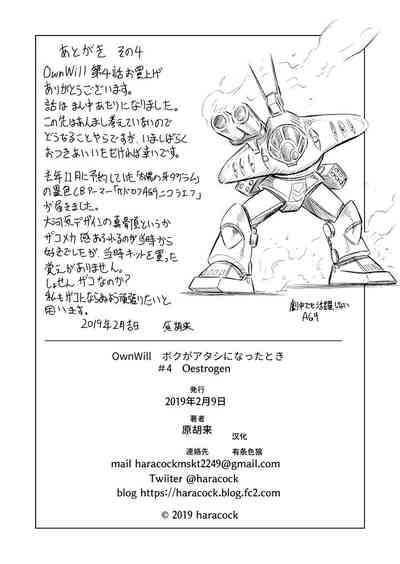 あとがき その4
OwnWill 第4話お買上げ
ありがとうございます。
話はまん中あたりになりました。
この先はあんまし考えていないので
どうなることやらですが、いましばらく
おつきあいいただければ幸いです。
去年11月に予約していた「太陽の牙ダグラム」
の
CBアーマー
が届きました。
大河原デザインの真骨頂というか
ザコメカ感あふれるのが当時から
好きでしたが、当時キットを買った
覚えがありません。
しょせん、ザコなのか?
私もザコとならぬよう頑張りたいと
思います。
2019年2月吉日 原胡来
劇中でも活躍しない
AG9
OwnWill ボクがアタシになったとき
#4 Oestrogen
発行
2019年2月9日
著者
原胡来
汉化
連絡先 有条色狼
mail haracockmskt2249@gmail.com
Twiiter @haracock
blog https://haracock.blog.fc2.com
© 2019 haracock